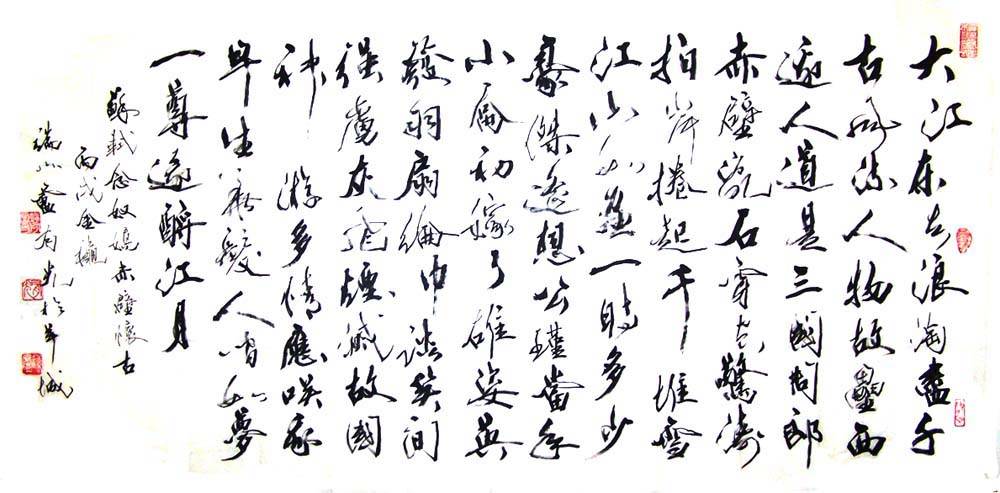 大江东去浪淘盡千
古風流人物故壘西
邊人道是三國周郎
赤壁亂石穿空驚濤
拍岸捲起千堆雪
江山如畫一時多少
豪傑遙想公瑾當年
小喬初嫁了雄姿英
發羽扇綸巾談笑间
强虜灰飛煙滅故國
神游多情應咲我
早生華髮人間如夢
一尊還酹江月
蘇軾念奴嬌赤壁懷古
丙戌金龝
有光於羊城